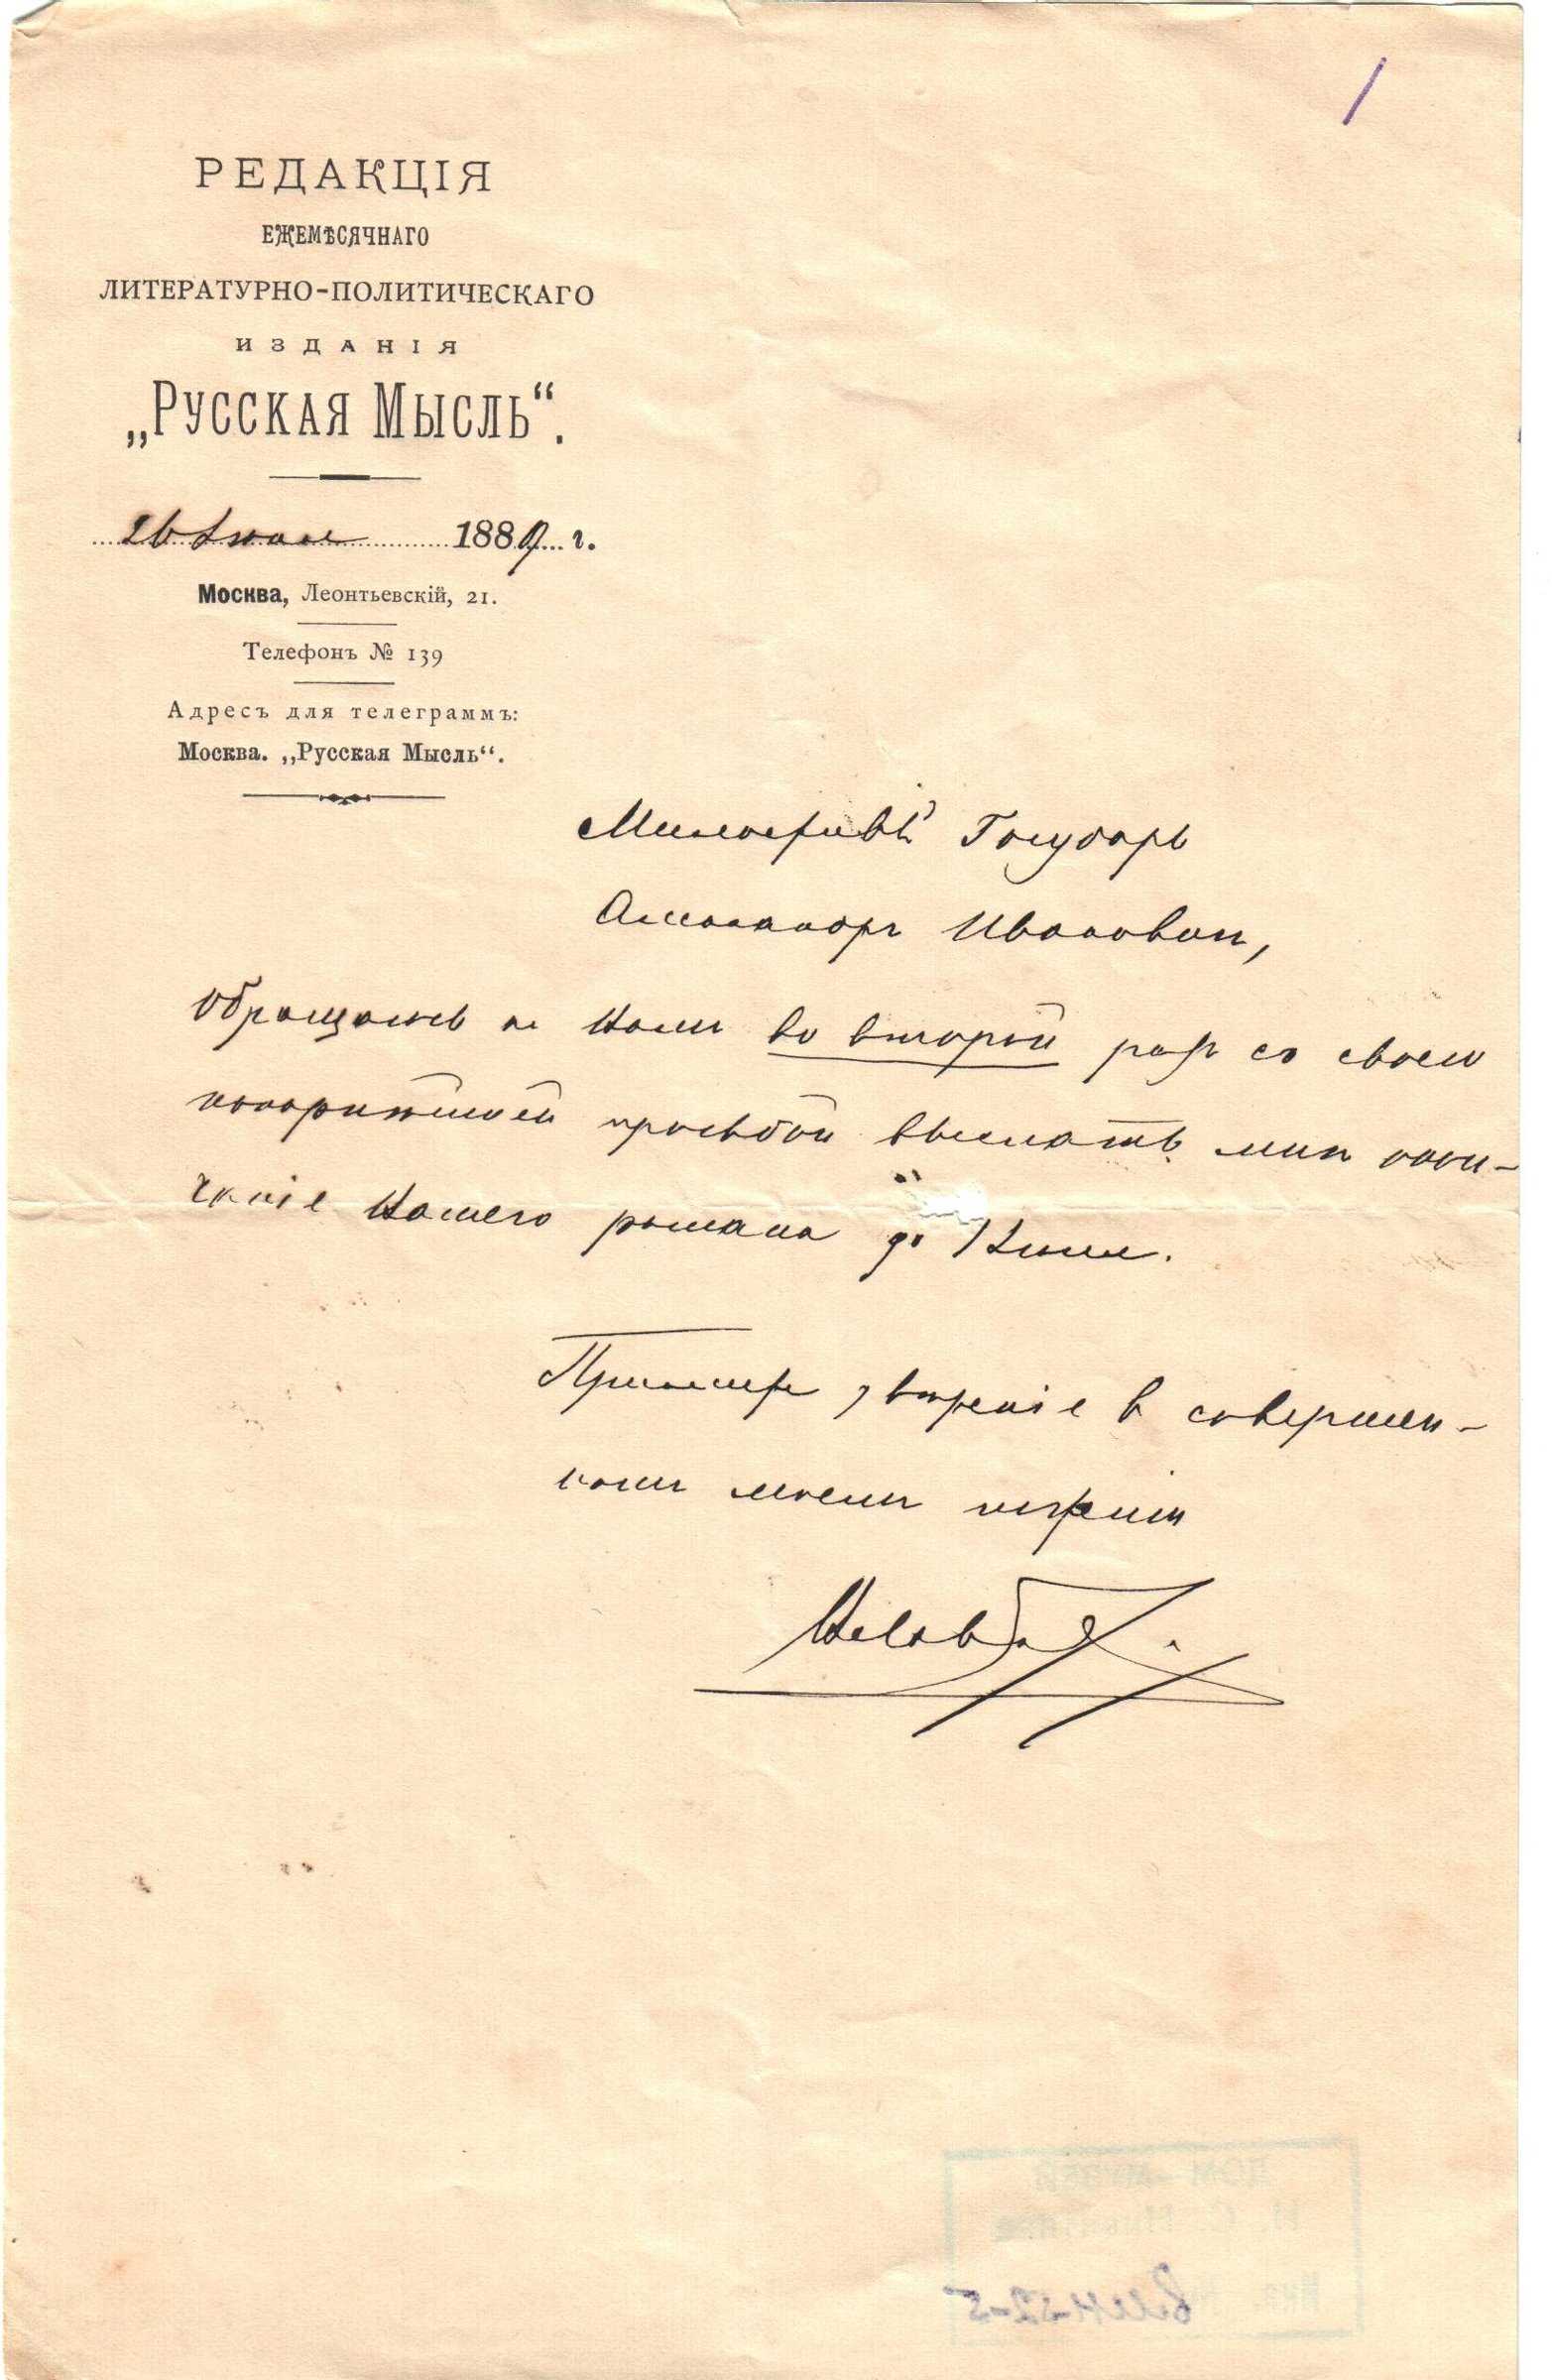 РЕДАКЦІЯ
ЕЖЕМѢСЯЧНАГО
ЛИТЕРАТУРНО-ПОЛИТИЧЕСКАГО
ИЗДАНІЯ
„РУССКАЯ МЫСЛЬ“.
26 Іюля 1889 г.
Москва, Леонтьевскій, 21.
Телефонъ № 139
Адресъ для телеграммъ:
Москва. „Русская Мысль“.
Милостивый Государь
Александръ Ивановичъ,
Обращаюсь къ Вамъ во второй разъ со своею
покорнѣйшей просьбой выслать мнѣ окон-
чаніе Вашего романа до
Примите увѣреніе в совершен-
номъ моемъ почтеніи
ДОМ-МУЗЕЙ
И. С. Никитина
Инв. №